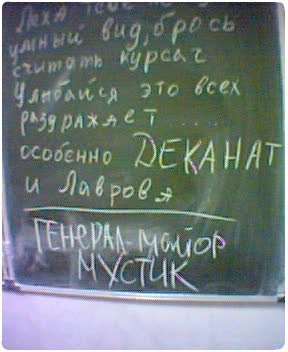 Лёха
умный вид, брось
считать курсач
Улыбайся это всех
раздражает ....
особенно ДЕКАНАТ
и Лавров
ГЕНЕРАЛ-майор
МУСТИК